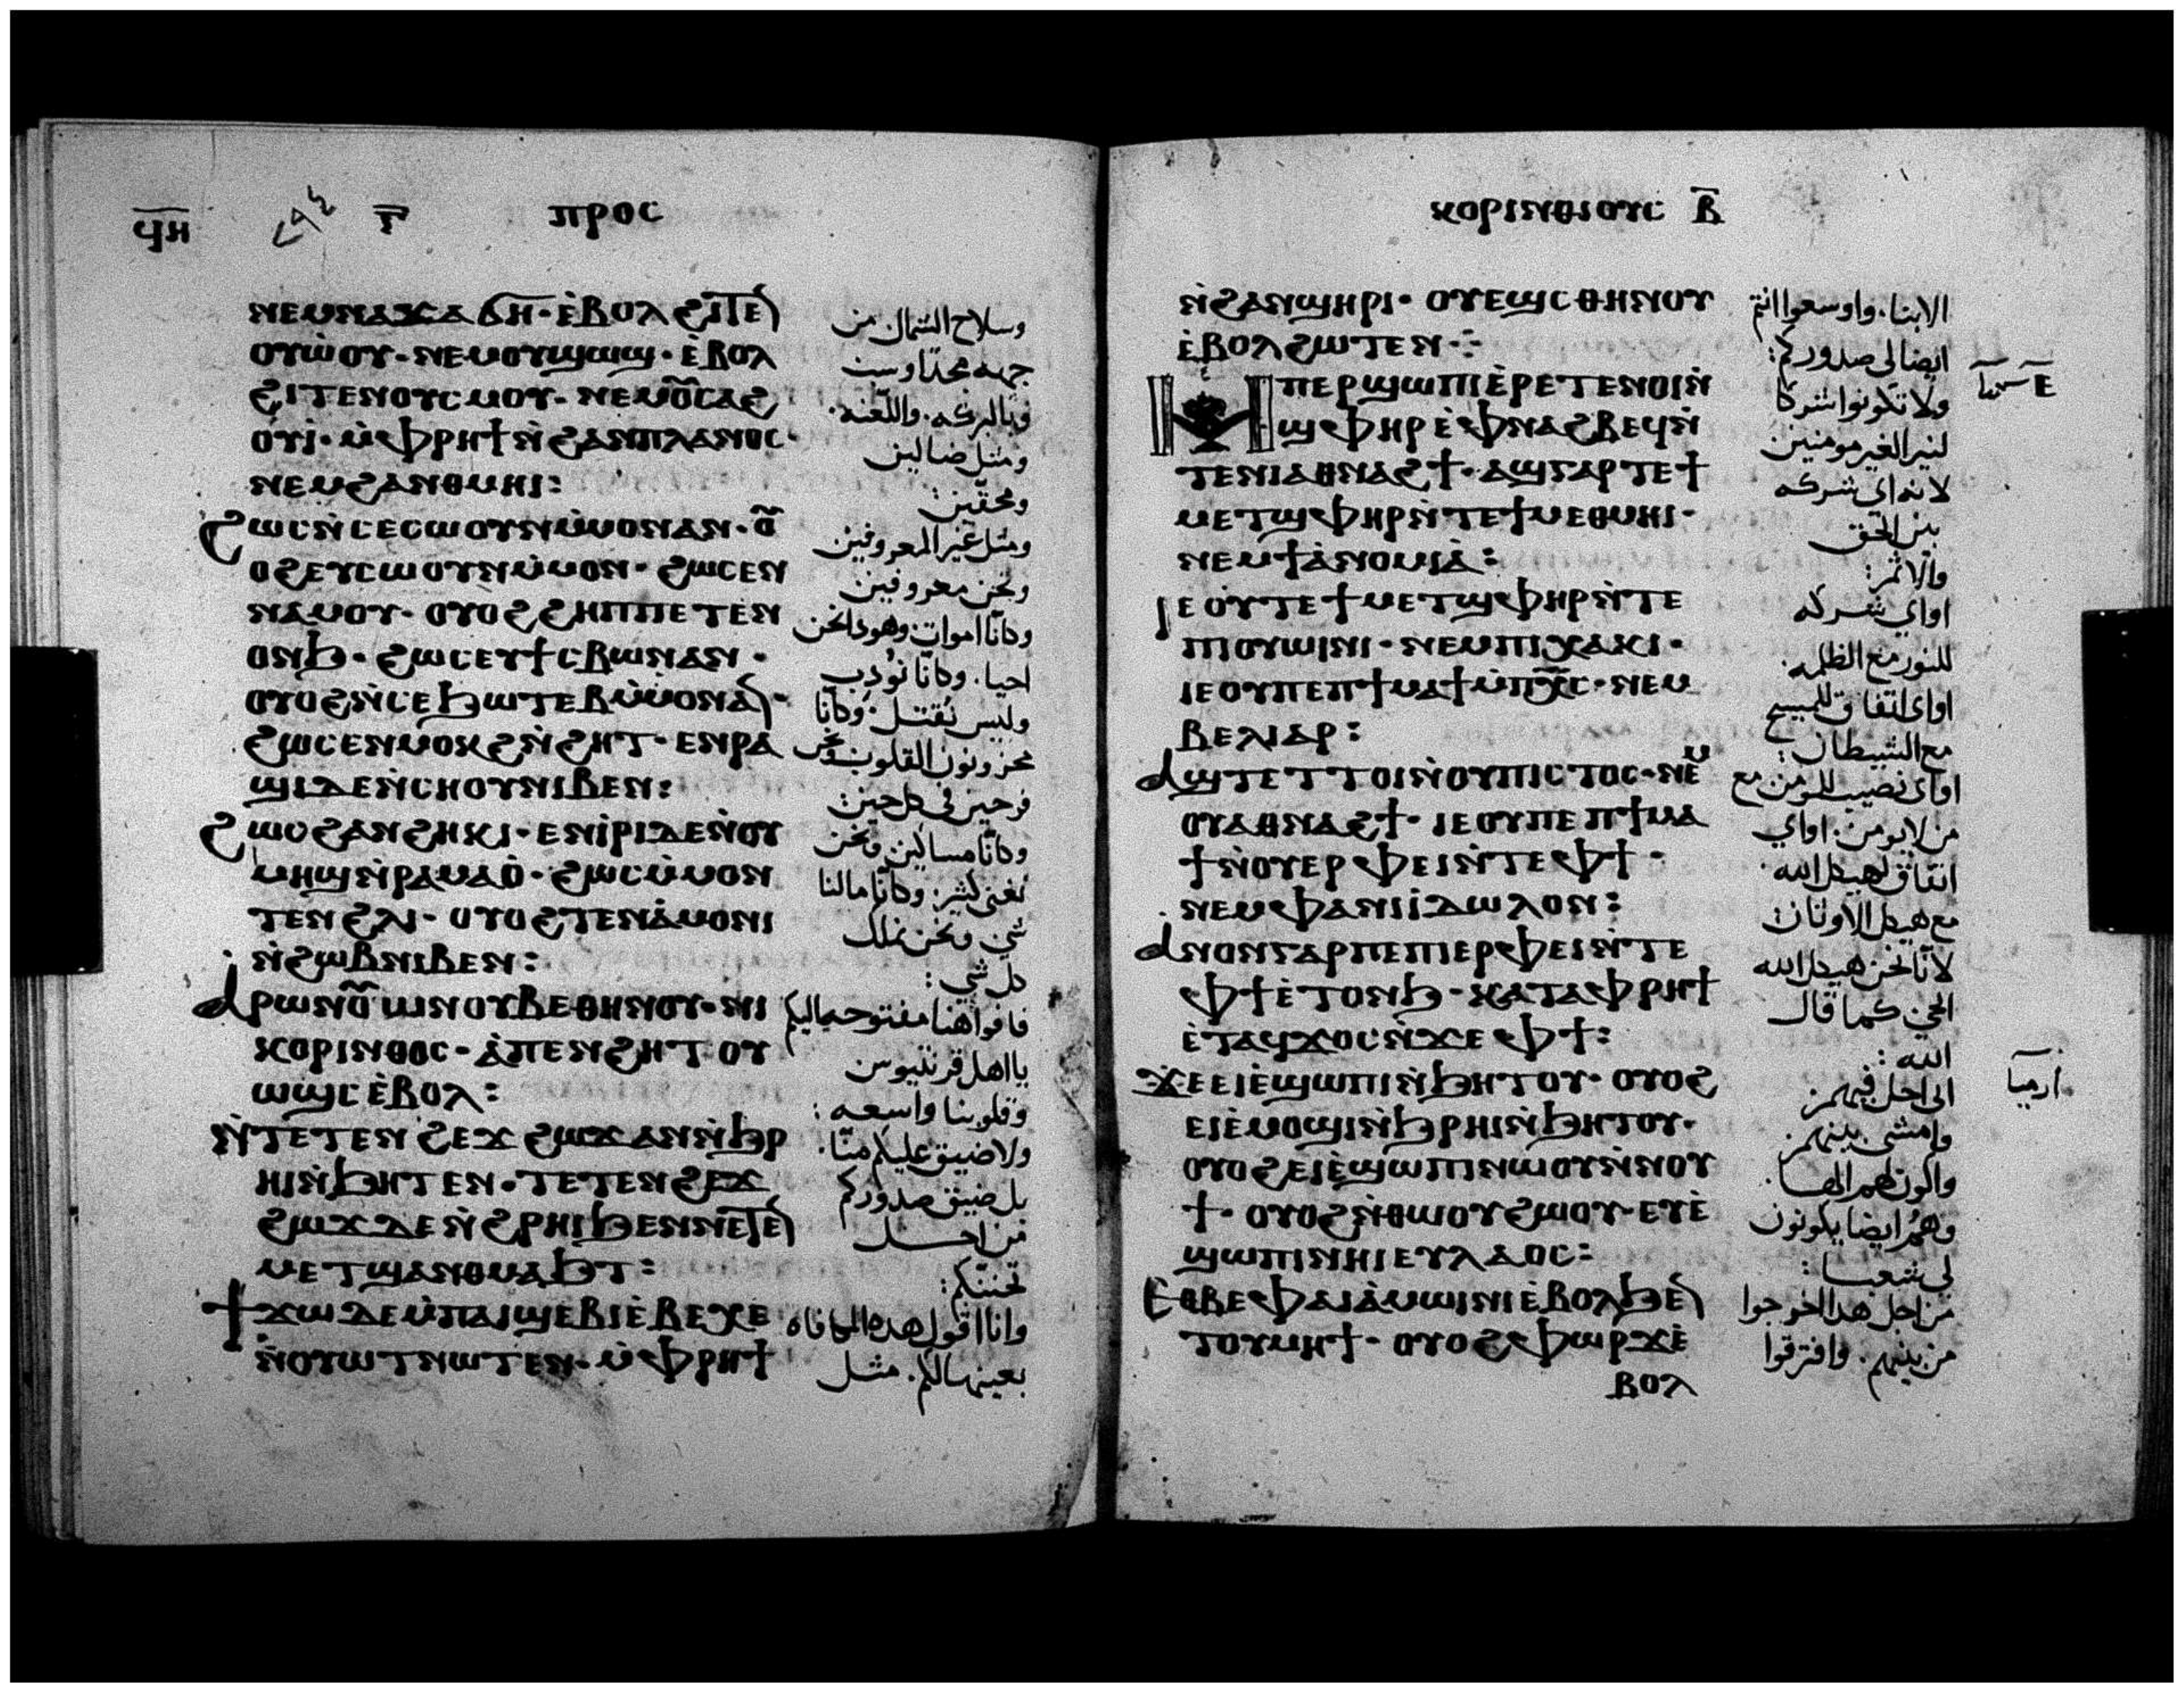 ϥⲏ ⲅ ⲡⲣⲟⲥ
ⲛⲉⲙⲛⲁϫⲁϭⲏ· ⲉ̀ⲃⲟⲗ ϩⲓⲧⲉ
ⲟⲩⲱ̀ⲟⲩ· ⲛⲉⲙⲟⲩϣⲱϣ· ⲉ̀ⲃⲟⲗ
ϩⲓⲧⲉⲛⲟⲩⲥⲙⲟⲩ· ⲛⲉⲙⲟ̅ⲥⲁϩ
ⲟⲩⲓ̀· ⲙ̀ⲫⲣⲏϯ ⲛ̀ϩⲁⲛⲡⲗⲁⲛⲟⲥ·
ⲛⲉⲙϩⲁⲛⲑⲙⲏⲓ:
ϩⲱⲥⲛ̀ⲥⲉⲥⲱⲟⲩⲛⲙ̀ⲙⲟⲛⲁⲛ· ⲟ̅
ⲟϩⲉⲩⲥⲱⲟⲩⲛⲙ̀ⲙⲟⲛ· ϩⲱⲥⲉⲛ
ⲛⲁⲙⲟⲩ· ⲟⲩⲟϩ ϩⲏⲡⲡⲉⲧⲉⲛ
ⲟⲛϧ· ϩⲱⲥⲉⲩϯⲥⲃⲱⲛⲁⲛ·
ⲟⲩⲟϩⲛ̀ⲥⲉϧⲱⲧⲉⲃⲙ̀ⲙⲟⲛⲁ·
ϩⲱⲥⲉⲛⲙⲟⲕϩⲛ̀ϩⲏⲧ· ⲉⲛⲣⲁ
ϣⲓⲇⲉⲛ̀ⲥⲏⲟⲩⲛⲓⲃⲉⲛ:
ϩⲱⲥϩⲁⲛϩⲏⲕⲓ· ⲉⲛⲓ̀ⲣⲓⲇⲉⲛ̀ⲟⲩ
ⲙⲏϣⲛ̀ⲣⲁⲙⲁⲟ̀· ϩⲱⲥⲙ̀ⲙⲟⲛ
ⲧⲉⲛϩⲗⲓ· ⲟⲩⲟϩⲧⲉⲛⲁ̀ⲙⲟⲛⲓ
ⲛ̀ϩⲱⲃⲛⲓⲃⲉⲛ:
ⲁⲣⲱⲛⲟ̅ⲱⲛⲟⲩⲃⲉⲑⲏⲛⲟⲩ· ⲛⲓ
ⲕⲟⲣⲓⲛⲑⲟⲥ· ⲁ̀ⲡⲉⲛϩⲏⲧ ⲟⲩ
ⲱϣⲥⲉ̀ⲃⲟⲗ:
ⲛ̀ⲧⲉⲧⲉⲛϩⲉϫϩⲱϫⲁⲛⲛ̀ϧⲣ
ⲏⲓⲛ̀ϧⲏⲧⲉⲛ· ⲧⲉⲧⲉⲛϩⲉϫ
ϩⲱϫⲇⲉⲛ̀ϩⲣⲏⲓϧⲉⲛⲛⲉⲧⲉ
ⲙⲉⲧϣⲁⲛⲑⲙⲁϧⲧ:
ϯϫⲱⲇⲉⲙ̀ⲡⲁⲓϣⲉⲃⲓⲉ̀ⲃⲉⲭⲉ
ⲛ̀ⲟⲩⲱⲧⲛⲱⲧⲉⲛ· ⲙ̀ⲫⲣⲏϯ
وسلاح الشمال من
جهه مجد اوسب
وبالبركه. واللعنه.
ومثل ضالين
ومحقين:
ومثل غير المعروفين
ونحن معروفين
وكانا اموات وهوذا نحن
احيا. وكانا نودب
وليس نقتل. وكانا
محزونون القلوب ونحن
فرحين في كل حين:
وكانا مساكين ونحن
نغني كثير. وكانا مالنا
شي ونحن نملك
كل شي:
فافواهنا مفتوحه اليكم
يا اهل قرنتيوس
وقلوبنا واسعه:
ولا ضيق عليكم منا.
بل ضيق صدوركم
من اجل
تحننكم:
وانا اقول هذه المكافاه
بعينها لكم. مثل
ⲕⲟⲣⲓⲛⲑⲓⲟⲩⲥ ⲃ̅
ⲛ̀ϩⲁⲛϣⲏⲣⲓ· ⲟⲩⲉϣⲥⲑⲏⲛⲟⲩ
ⲉ̀ⲃⲟⲗϩⲱⲧⲉⲛ:
ⲙⲡⲉⲣϣⲱⲡⲓⲉ̀ⲣⲉⲧⲉⲛⲟⲓⲛ̀
ϣⲫⲏⲣⲉ̀ⲫⲛⲁϩⲃⲉϥⲛ̀
ⲧⲉⲛⲓⲁⲑⲛⲁϩϯ· ⲁϣⲅⲁⲣⲧⲉϯ
ⲙⲉⲧϣⲫⲏⲣⲛ̀ⲧⲉϯⲙⲉⲑⲙⲏⲓ·
ⲛⲉⲙϯⲁ̀ⲛⲟⲙⲓⲁ̀:
ⲓⲉⲟⲩⲧⲉϯⲙⲉⲧϣⲫⲏⲣⲛ̀ⲧⲉ
ⲡⲓⲟⲩⲱⲓⲛⲓ· ⲛⲉⲙⲡⲓⲭⲁⲕⲓ·
ⲓⲉⲟⲩⲡⲉⲡϯⲙⲁϯⲙ̀ⲡⲭ̅ⲥ· ⲛⲉⲙ
ⲃⲉⲗⲓⲁⲣ:
ⲁϣⲧⲉⲧⲧⲟⲓⲛ̀ⲟⲩⲡⲓⲥⲧⲟⲥ· ⲛⲉⲙ
ⲟⲩⲁⲑⲛⲁϩϯ· ⲓⲉⲟⲩⲡⲉⲡϯⲙⲁ
ϯⲛ̀ⲟⲩⲉⲣⲫⲉⲓⲛ̀ⲧⲉⲫϯ·
ⲛⲉⲙⲫⲁⲛⲓⲓ̀ⲇⲱⲗⲟⲛ:
ⲁⲛⲟⲛⲅⲁⲣⲡⲉⲡⲓⲉⲣⲫⲉⲓⲛ̀ⲧⲉ
ⲫϯⲉ̀ⲧⲟⲛϧ· ⲕⲁⲧⲁⲫⲣⲏϯ
ⲉ̀ⲧⲁϥϫⲟⲥⲛ̀ϫⲉⲫϯ:
ϫⲉⲉⲓⲉ̀ϣⲱⲡⲓⲛ̀ϧⲏⲧⲟⲩ· ⲟⲩⲟϩ
ⲉⲓⲉ̀ⲙⲟϣⲓⲛ̀ϧⲣⲏⲓⲛ̀ϧⲏⲧⲟⲩ·
ⲟⲩⲟϩⲉⲓⲉ̀ϣⲱⲡⲓⲛⲱⲟⲩⲛ̀ⲛⲟⲩ
ϯ· ⲟⲩⲟϩⲛ̀ⲑⲱⲟⲩϩⲱⲟⲩ· ⲉⲩⲉ̀
ϣⲱⲡⲓⲛⲏⲓⲉⲩⲗⲁⲟⲥ:
ⲉⲑⲃⲉⲫⲁⲓⲁ̀ⲙⲱⲓⲛⲓⲉ̀ⲃⲟⲗϧⲉ
ⲧⲟⲩⲙⲏϯ· ⲟⲩⲟϩⲫⲱⲣϫⲉ̀
ⲃⲟⲗ
الابنا. واوسعوا انتم
ايضا لي صدوركم:
ولا تكونوا شركا
لنير الغير مومنين
لانه اي شركه
بين الحق
والاثم:
اواي شركه
للنور مع الظلمه.
اواي اتفاق للمسيح
مع الشيطان:
اواي نصيب للمومن مع
من لا يومن. اواي
اتفاق لهيكل الله
مع هيكل الاوثان:
لانا نحن هيكل الله
الحي كما قال
الله:
اني احل فيهم
وامشي بينهم
واكون لهم الها.
وهم ايضا يكونون
لي شعبا:
من اجل هذا اخرجوا
من بينهم. وافترقوا
ارميا